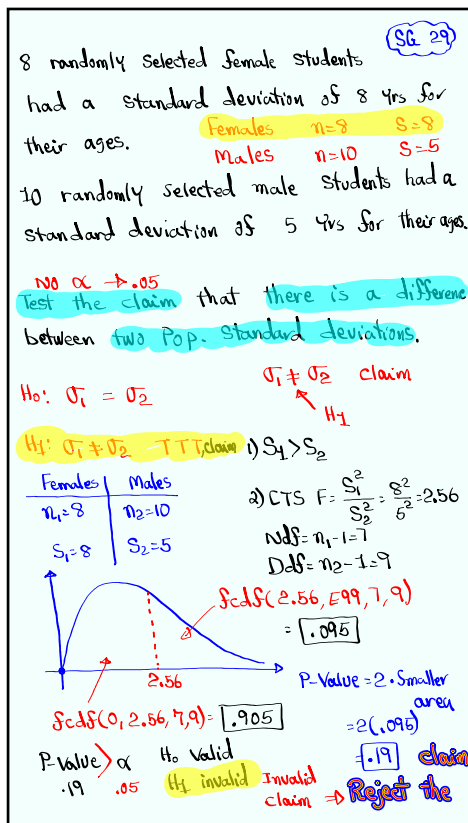 SG 29
8 randomly selected female students
had a standard deviation of 8 yrs for
their ages.
Females n=8 S=8
Males n=10 S=5
10 randomly selected male students had a
standard deviation of 5 yrs for their ages.
No α → .05
Test the claim that there is a difference
between two Pop. Standard deviations.
σ₁ ≠ σ₂ claim
H₀: σ₁ = σ₂
H₁
H₁: σ₁ ≠ σ₂ TTT, claim
1) S₁ > S₂
Females | Males
n₁=8 | n₂=10
S₁=8 | S₂=5
2) CTS F = S₁²/S₂² = 8²/5² = 2.56
Ndf = n₁-1 = 7
Ddf = n₂-1 = 9
fcdf(2.56, E99, 7, 9)
= .095
2.56
fcdf(0, 2.56, 7, 9) = .905
P-Value = 2 · Smaller
area
= 2(.095)
= .19
P-Value > α
.19 .05
H₀ Valid
H₁ invalid
Invalid
claim ⇒ Reject the
claim